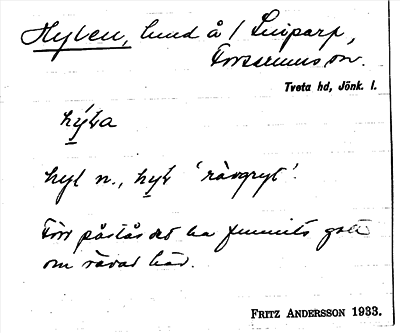 Hylen, lund å / Liuparp,
Forserums sn.
Tveta hd, Jönk. l.
hýɫa
hyl n., hyɫ 'rävgryt'.
Förr påstås det ha funnits gott
om rävar här.
FRITZ ANDERSSON 1933.